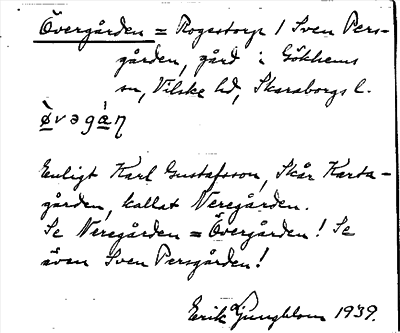 Övergården = Rogestorp 1 Sven Pers-
gården, gård i Gökhems
sn, Vilske hd, Skaraborgs l.
ø̀vəgàɳ
Enligt Karl Gustafsson, Skår Karta-
gården, kallat Neregården.
Se Neregården = Övergården! Se
även Sven Persgården!
Erik Ljungblom 1939.